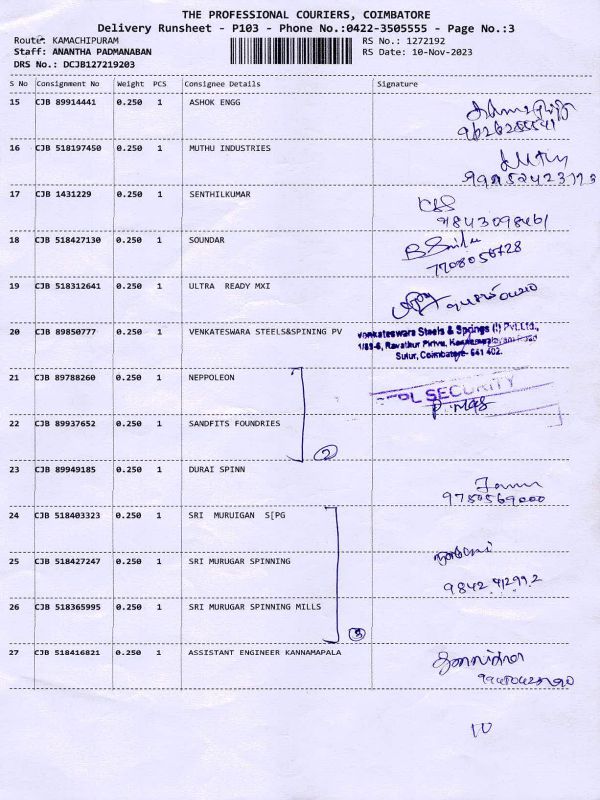 THE PROFESSIONAL COURIERS, COIMBATORE
Delivery Runsheet - P103 - Phone No.:0422-3505555 - Page No.:3
Route: KAMACHIPURAM RS No.: 1272192
Staff: ANANTHA PADMANABAN RS Date: 10-Nov-2023
DRS No.: DCJB127219203
S No Consignment No Weight PCS Consignee Details Signature
15 CJB 89914441 0.250 1 ASHOK ENGG
16 CJB 518197450 0.250 1 MUTHU INDUSTRIES
17 CJB 1431229 0.250 1 SENTHILKUMAR
9843098461
18 CJB 518427130 0.250 1 SOUNDAR
7708056728
19 CJB 518312641 0.250 1 ULTRA READY MXI
20 CJB 89850777 0.250 1 VENKATESWARA STEELS&SPINING PV
Venkateswara Steels & Springs (I) Pvt.Ltd.,
Sulur, Coimbatore- 641 402.
21 CJB 89788260 0.250 1 NEPPOLEON
SECURITY
22 CJB 89937652 0.250 1 SANDFITS FOUNDRIES
2
23 CJB 89949185 0.250 1 DURAI SPINN
9750569000
24 CJB 518403323 0.250 1 SRI MURUIGAN S[PG
25 CJB 518427247 0.250 1 SRI MURUGAR SPINNING
9842412992
26 CJB 518365995 0.250 1 SRI MURUGAR SPINNING MILLS
3
27 CJB 518416821 0.250 1 ASSISTANT ENGINEER KANNAMAPALA
10